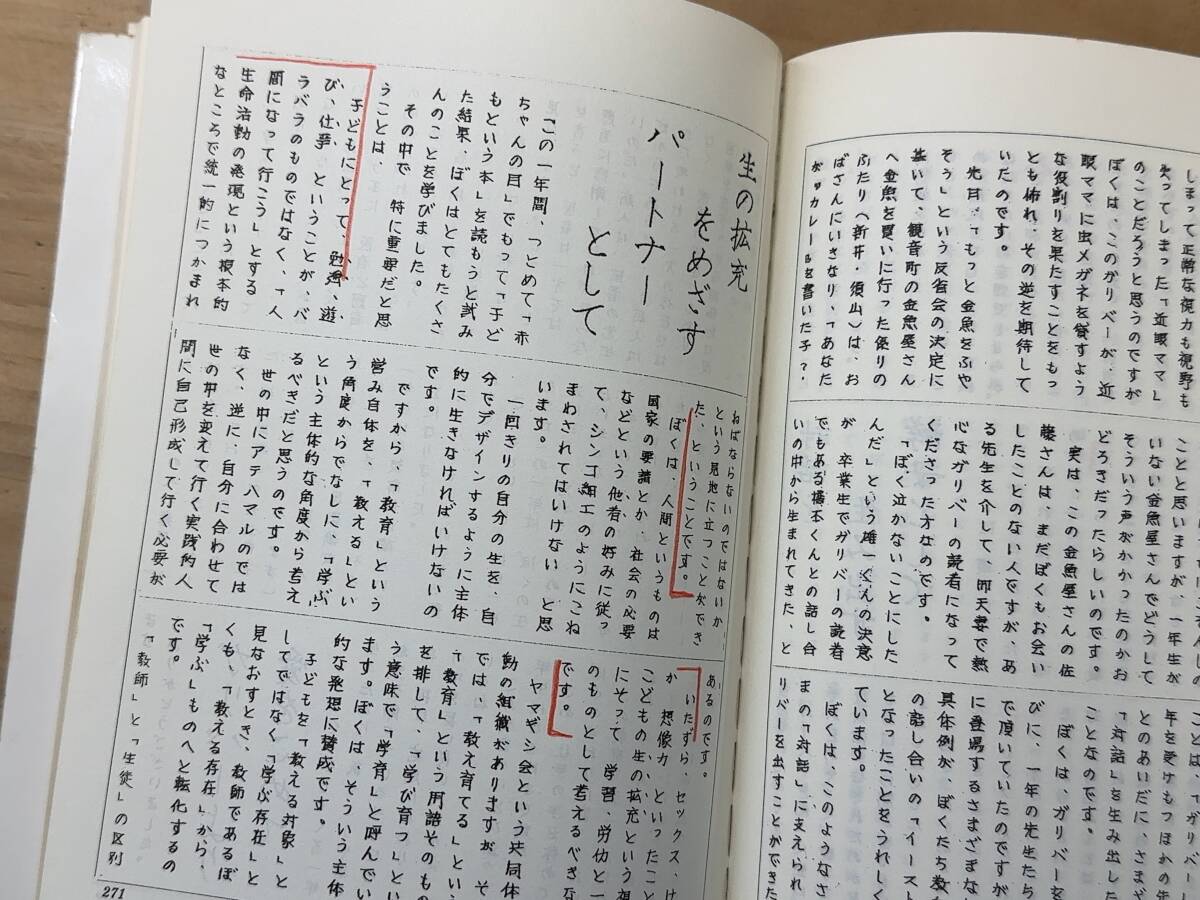 しまって正常な視力も視野も
失ってしまった「近眼ママ」
のことだろうと思うのですが
ぼくは、このガリバーが、近
眼ママに虫メガネを貸すよう
な役割りを果たすことをもっ
とも怖れ、その逆を期待して
いたのです。
先日、「もっと金魚をふや
そう」という反省会の決定に
基いて、観音町の金魚屋さん
へ金魚を買いに行った係りの
ふたり(新井・須山)は、お
ばさんにいきなり、「あなた
カレー
を書いた子?
ことと思いますが、一年生が
いない金魚屋さんでどうして
そういう声がかかったのかお
どろきだったらしいのです。
実は、この金魚屋さんの佐
藤さんは、まだぼくもお会い
したことのない人ですが、あ
る先生を介して、
で熱
心なガリバーの読者になって
くださった方なのです。
「ぼく泣かないことにした
んだ」という雄一くんの決意
が 卒業生でガリバーの読者
でもある橋本くんとの話し合
いの中から生まれてきた、と
ことは、「ガリバー
年を受けもつほかの先
とのあいだに、さまざ
「対話」を生み出した
ことなのです。
ぼくは、ガリバーを
びに、一年の先生たち
で頂いていたのですが
に登場するさまざまな
具体例が、ぼくたち教
の話し合いの「イースト
となったことをうれしく
ています。
ぼくは、このようなさ
まの「対話」に支えられ
リバーを出すことができた
生の拡充
をめざす
パートナー
として
「この一年間、つとめて「赤
ちゃんの目」でもって「子ど
もという本」を読もうと試み
た結果、ぼくはとてもたくさ
んのことを学びました。
その中で 特に重要だと思
うことは、
子どもにとって、勉強、遊
び、仕事 ということが、バ
ラバラのものではなく、「人
間になって行こう」とする
生命活動の発現という根本的
なところで統一的につかまれ
ねばならないのではないか
という見地に立つことができ
た、ということです。
ぼくは、人間というものは
国家の要請とか、社会の必要
などという他者の好みに従っ
て、シンコ細工のようにこね
まわされてはいけない と思
います。
一回きりの自分の生を、自
分でデザインするように主体
的に生きなければいけないの
です。
ですから、「教育」という
営み自体を、「教える」とい
う角度からでなしに、「学ぶ」
という主体的な角度から考え
るべきだと思うのです。
世の中にアテハマルのでは
なく、逆に、自分に合わせて
世の中を変えて行く実践的人
間に自己形成して行く必要が
あるのです。
いたずら、セックス、け
か 想像力、といったこと
こどもの生の拡充という視
にそって 学習、労仂と一
のものとして考えるべきな
です。
ヤマギシ会という共同体
動の組織がありますが そ
では、「教え育てる」とい
「教育」という用語そのもの
を排して、「学び育つ」とい
う意味で「学育」と呼んでい
ます。ぼくは、そういう主体
的な発想に賛成です。
子どもを「教える対象」と
してではなく「学ぶ存在」と
見なおすとき、教師であるぼ
くも、「教える存在」から、
「学ぶ」ものへと転化するの
です。
「教師」と「生徒」の区別
271